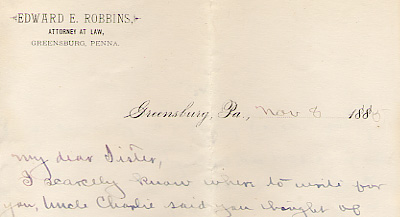 EDWARD E. ROBBINS,
ATTORNEY AT LAW,
GREENSBURG, PENNA.
Greensburg, Pa., Nov 8 188
My dear Sister,
I scarcely know where to write for
you, Uncle Charlie said you thought of